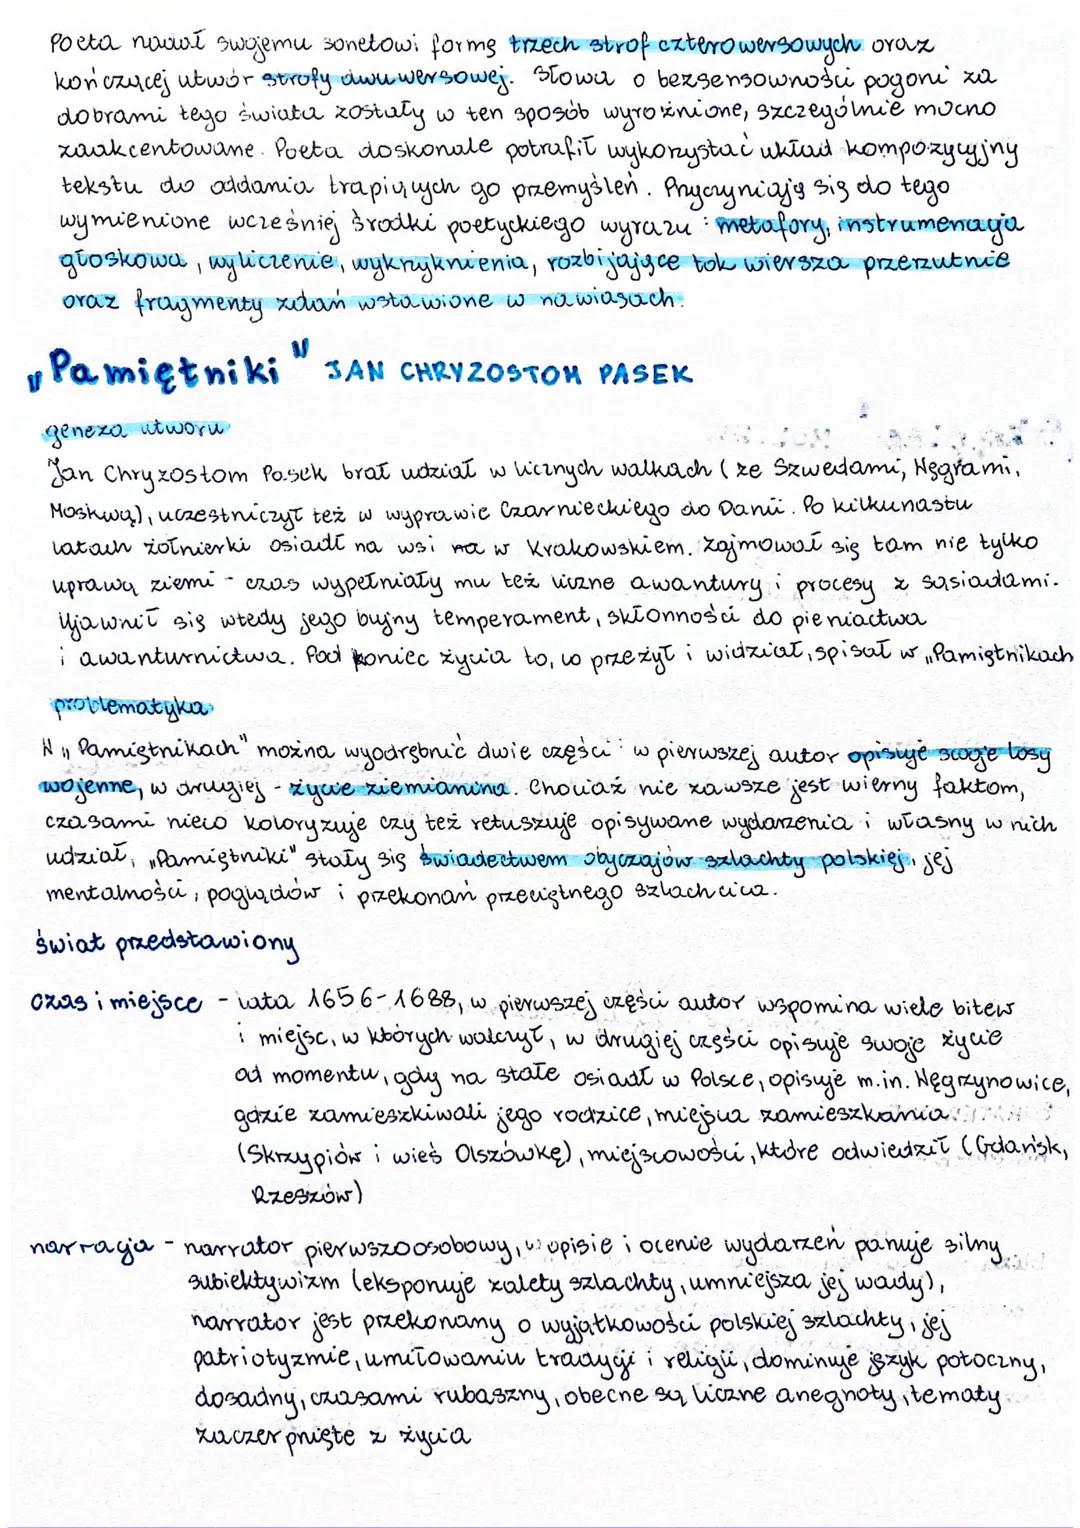 Poeta nadał swojemu sonetowi formę trzech strof czterowersowych oraz
kończącej utwór strofy dwuwersowej. Słowa o bezsensowności pogoni za
dobrami tego świata zostały w ten sposób wyróżnione, szczególnie mocno
zaakcentowane. Poeta doskonale potrafił wykorzystać układ kompozycyjny
tekstu do oddania trapiących go przemyśleń. Przyczyniają się do tego
wymienione wcześniej środki poetyckiego wyrazu: metafory, instrumenacja
głoskowa, wyliczenie, wykrzyknienia, rozbijające tok wiersza przerzutnie
oraz fragmenty zdań wstawione w nawiasach.
"Pamiętniki" JAN CHRYZOSTOM PASEK
geneza utworu
Jan Chryzostom Pasek brał udział w licznych walkach (ze Szwedami, Węgrami,
Moskwą), uczestniczył też w wyprawie Czarnieckiego do Danii. Po kilkunastu
latach żołnierki osiadł na wsi w Krakowskiem. Zajmował się tam nie tylko
uprawą ziemi - czas wypełniały mu też liczne awantury i procesy z sąsiadami.
Ujawnił się wtedy jego bujny temperament, skłonności do pieniactwa
i awanturnictwa. Pod koniec życia to, co przeżył i widział, spisał w „Pamiętnikach
problematyka
W „Pamiętnikach" można wyodrębnić dwie części: w pierwszej autor opisuje swoje losy
wojenne, w drugiej - życie ziemianina. Chociaż nie zawsze jest wierny faktom,
czasami nieco koloryzuje czy też retuszuje opisywane wydarzenia i własny w nich
udział, „Pamiętniki" stały się świadectwem obyczajów szlachty polskiej, jej
mentalności, poglądów i przekonań przeciętnego szlachcica.
świat przedstawiony
czas i miejsce - lata 1656-1688, w pierwszej części autor wspomina wiele bitew
i miejsc, w których walczył, w drugiej części opisuje swoje życie
od momentu, gdy na stałe osiadł w Polsce, opisuje m.in. Węgrzynowice,
gdzie zamieszkiwali jego rodzice, miejsca zamieszkania
(Skrzypiów i wieś Olszówkę), miejscowości, które odwiedził (Gdańsk,
Rzeszów)
narracja - narrator pierwszoosobowy, w opisie i ocenie wydarzeń panuje silny
subiektywizm (eksponuje zalety szlachty, umniejsza jej wady),
narrator jest przekonany o wyjątkowości polskiej szlachty, jej
patriotyzmie, umiłowaniu tradycji i religii, dominuje język potoczny,
dosadny, czasami rubaszny, obecne są liczne anegnoty, tematy
zaczerpnięte z życia